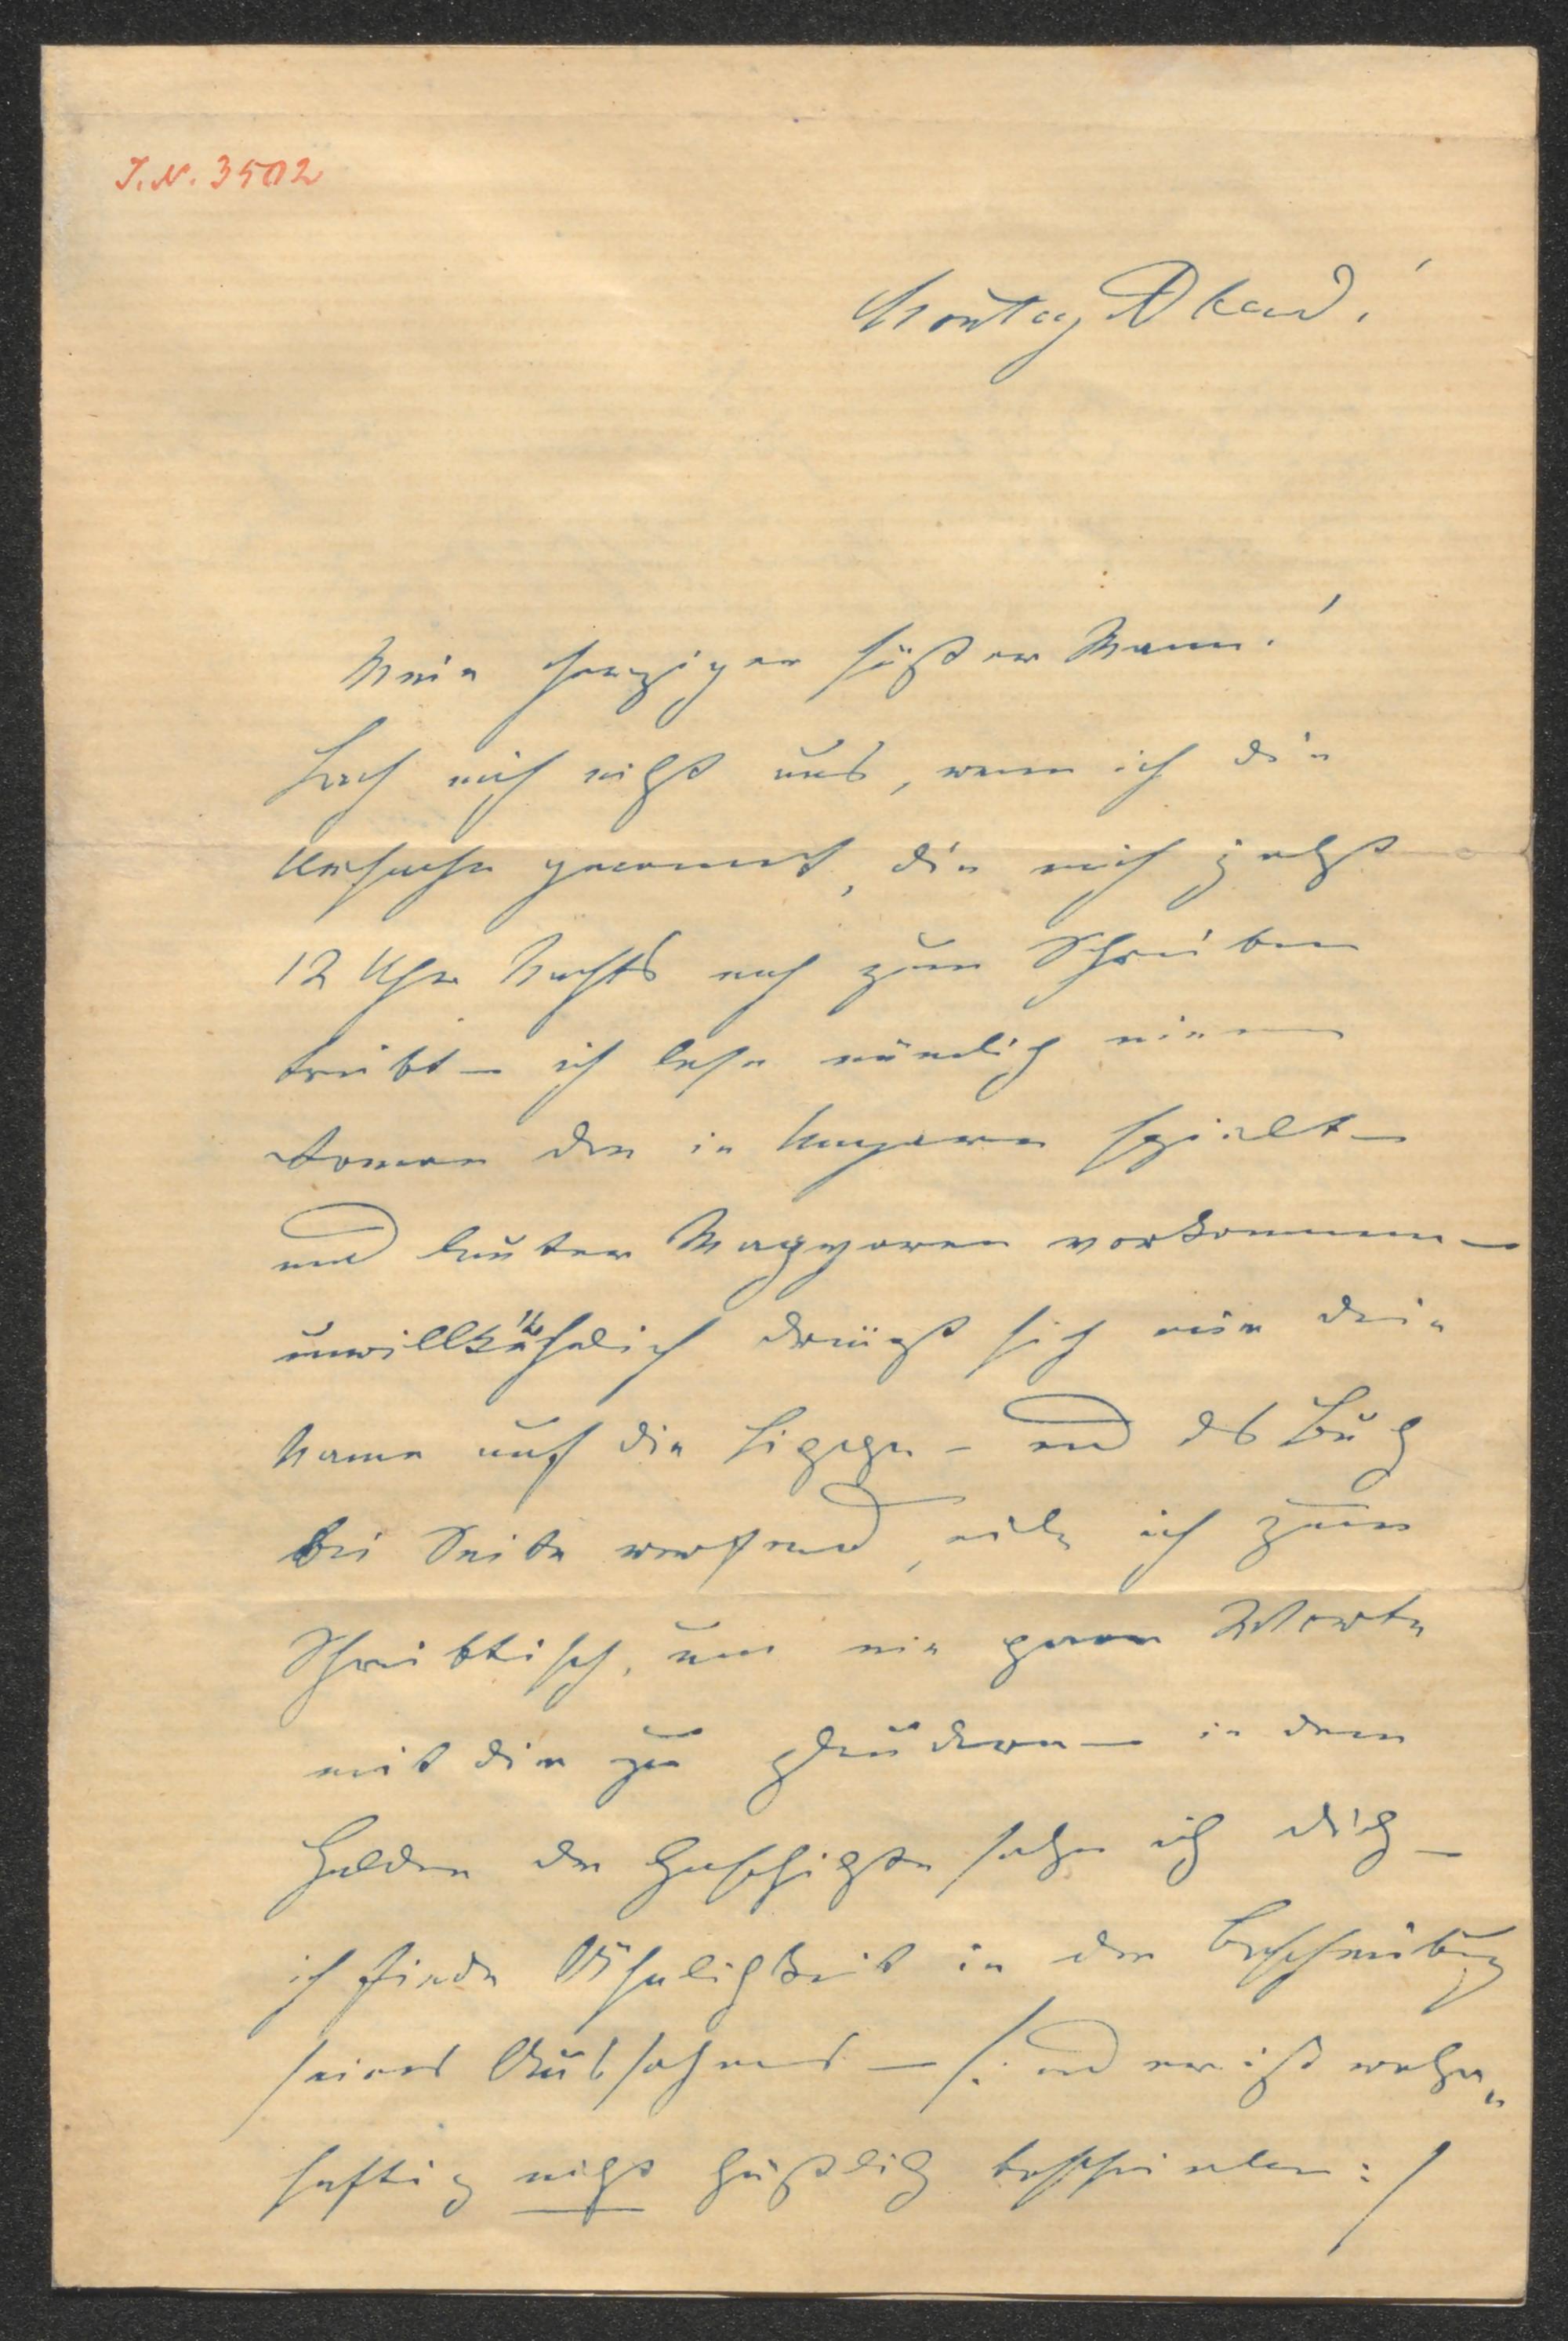 I.N. 3502
Montag Abend!
Mein herziger süßer Mann!
Lach mich nicht aus, wenn ich die
Ursache genannt, die mich jetzt
12 Uhr Nachts noch zum Schreiben
treibt – ich lese nämlich einen
Roman der in Ungarn spielt –
und lauter Magyaren vorkommen –
unwillkührlich drängt sich mir dein
Name auf die Lippen – und das Buch
bei Seite werfend, eile ich zum
Schreibtisch, um ein paar Worte
mit dir zu plaudern – in dem
Helden der Geschichte sehe ich dich –
ich finde Ähnlichkeit in der Beschreibung
seines Aussehens – /: und er ist wahr„
haftig nicht häßlich beschrieben :/